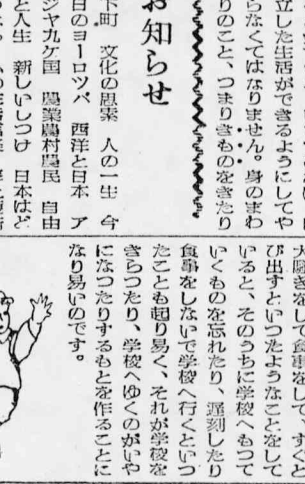 立した生活ができるようにしてや
らなくてはなりません。身のまわ
りのこと、つまりきものをきたり
お知らせ
下町 文化の思索 人の一生 今
日のヨーロッパ 西洋と日本 ア
ジヤ九ケ国 農業農村農民 自由
と人生 新しいしつけ 日本はど
して食事をして、すぐと
び出すといつたようなことをして
いると、そのうちに学校へもつて
いくものを忘れたり、遅刻したり
食事をしないで学校へ行くといつ
たことも起り易く、それが学校を
きらつたり、学校へゆくのがいや
になつたりするもとを作ることに
なり易いのです。